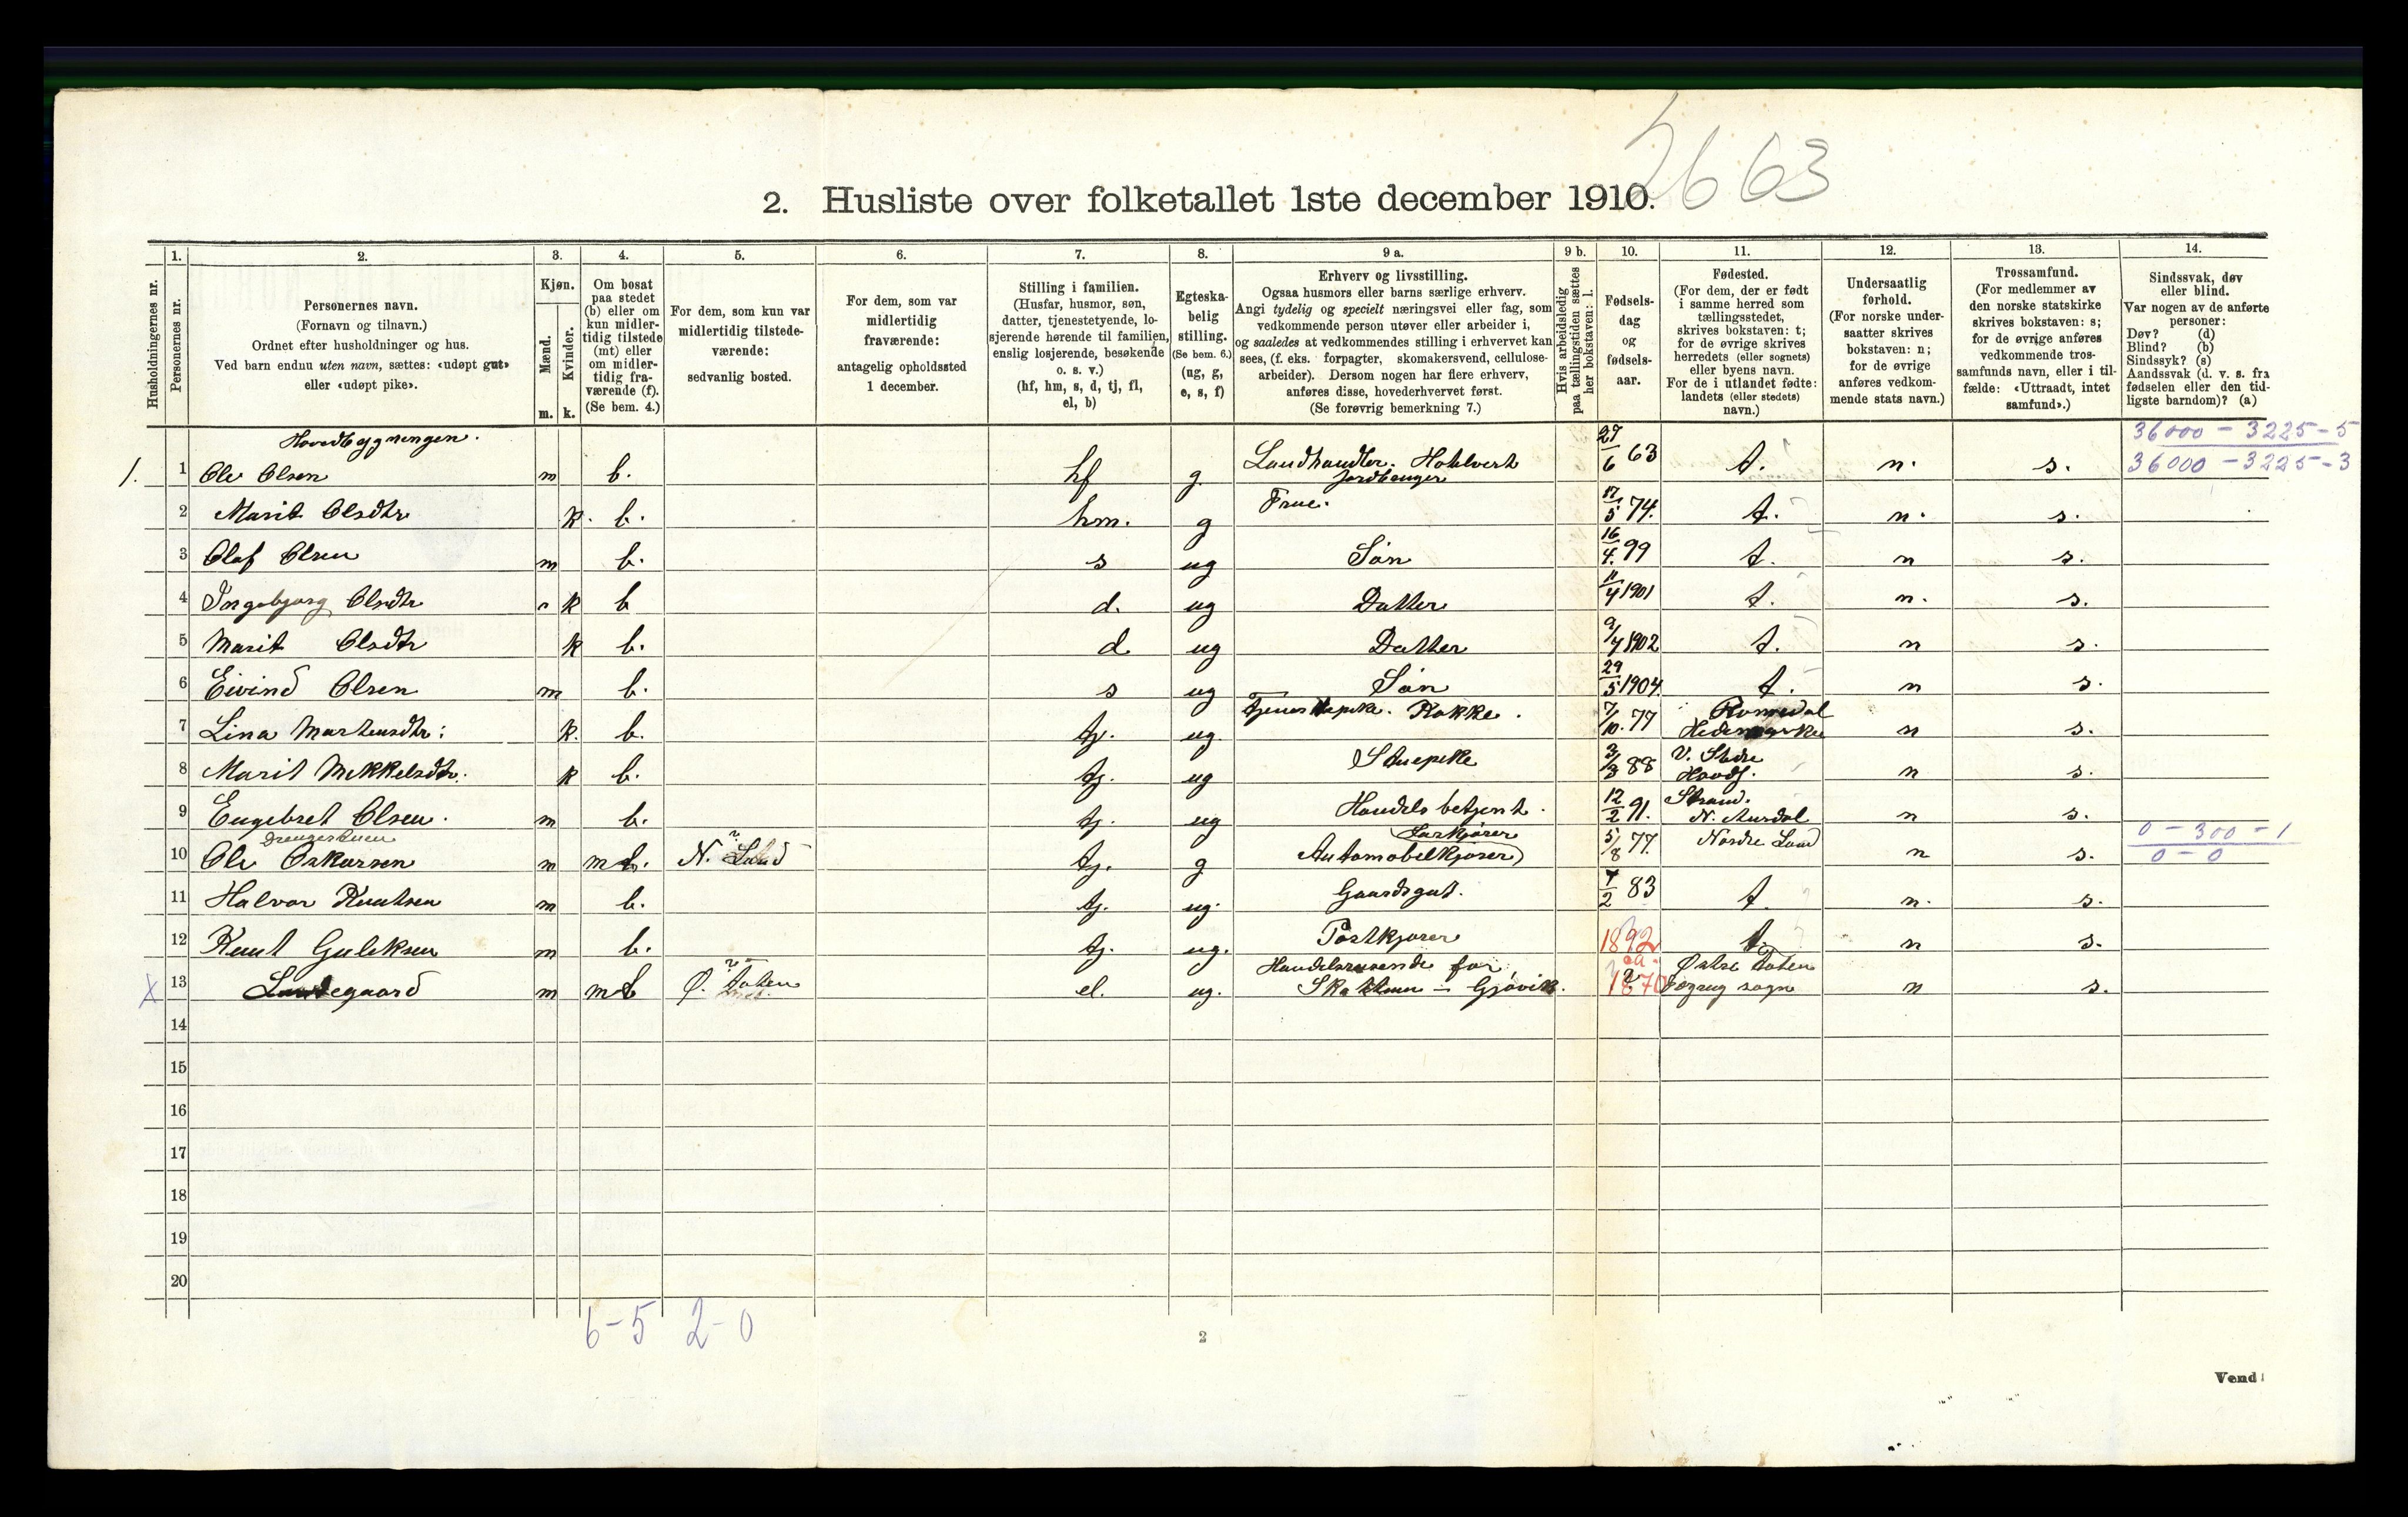 2663
2. Husliste over folketallet 1ste december 1910.
Husholdningernes nr.
1. Personernes nr.
2. Personernes navn.
(Fornavn og tilnavn.)
Ordnet efter husholdninger og hus.
Ved barn endnu uten navn, sættes: «udøpt gut»
eller «udøpt pike».
3. Kjøn.
Mænd. m.
Kvinder. k.
4. Om bosat
paa stedet
(b) eller om
kun midler-
tidig tilstede
(mt) eller
om midler-
tidig fra-
værende (f).
(Se bem. 4.)
5. For dem, som kun var
midlertidig tilstede-
værende:
sedvanlig bosted.
6. For dem, som var
midlertidig
fraværende:
antagelig opholdssted
1 december.
7. Stilling i familien.
(Husfar, husmor, søn,
datter, tjenestetyende, lo-
sjerende hørende til familien,
enslig losjerende, besøkende
o. s. v.)
(hf, hm, s, d, tj, fl,
el, b)
8. Egteska-
belig
stilling.
(Se bem. 6.)
(ug, g,
e, s, f)
9 a. Erhverv og livsstilling.
Ogsaa husmors eller barns særlige erhverv.
Angi tydelig og specielt næringsvei eller fag, som
vedkommende person utøver eller arbeider i,
og saaledes at vedkommendes stilling i erhvervet kan
sees, (f. eks. forpagter, skomakersvend, cellulose-
arbeider). Dersom nogen har flere erhverv,
anføres disse, hovederhvervet først.
(Se forøvrig bemerkning 7.)
9 b. Hvis arbeidsledig
paa tællingstiden sættes
her bokstaven: l.
10. Fødsels-
dag
og
fødsels-
aar.
11. Fødested.
(For dem, der er født
i samme herred som
tællingsstedet,
skrives bokstaven: t;
for de øvrige skrives
herredets (eller sognets)
eller byens navn.
For de i utlandet fødte:
landets (eller stedets)
navn.)
12. Undersaatlig
forhold.
(For norske under-
saatter skrives
bokstaven: n;
for de øvrige
anføres vedkom-
mende stats navn.)
13. Trossamfund.
(For medlemmer av
den norske statskirke
skrives bokstaven: s;
for de øvrige anføres
vedkommende tros-
samfunds navn, eller i til-
fælde: «Uttraadt, intet
samfund».)
14. Sindssvak, døv
eller blind.
Var nogen av de anførte
personer:
Døv? (d)
Blind? (b)
Sindssyk? (s)
Aandssvak (d. v. s. fra
fødselen eller den tid-
ligste barndom)? (a)
Hovedbygningen.
36000 - 3225 - 5
1. 1 Ole Olsen m b. hf g Landhandler. Hotelvert Jordbruger 27/6 63 t. n. s. 36000 - 3225 - 3
2 Marit Olsdtr k. b. hm. g Frue. 17/5 74. t. n. s.
3 Olaf Olsen m b. s ug Søn 16/4. 99 t. n s.
4 Ingebjørg Olsdtr k b d. ug Datter 11/4 1901 t. n. s.
5 Marit Olsdtr k b. d ug Datter 9/4 1902 t. n s.
6 Eivind Olsen m b. s ug Søn 29/5 1904 t. n s.
7 Lina Martensdtr: k. b. tj. ug. Tjenestepike. Kokke. 7/10. 77 Romedal Hedemarken n s.
8 Marit Mikkelsdtr. k b. tj. ug Stuepike 3/3 88 V. Slidre n s.
9 Engebret Olsen. m b. tj. ug Handelsbetjent. 12/2 91. Strand. N. Aurdal n s.
Drengestuen
0 - 300 - 1
10 Ole Oskarsen m mt. N. Land tj. g Automobilkjører 5/8 77. Nordre Land n s. 0 - 0
11 Halvor Knutsen m b. tj. ug. Gaardsgut. 7/2 83 t. n. s.
12 Knut Guliksen m b. tj. ug. Postkjører 1892 t. n s.
X 13 Landegaard m mt Ø. Toten el. ug. Handelsreisende for, - Gjøvik. ca. 1870 Østre Toten sogn n s.
14
15
16
17
18
19
20
6-5 2-0
2
Vend!